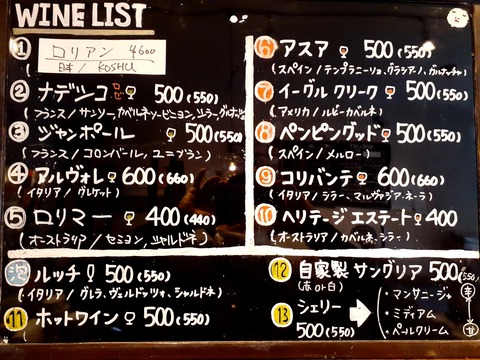 WINE LIST
① ロリアン ¥600
日本 / KOSHU
② ナデシコ ロゼ 500(550)
(フランス/サンソー、カベルネソービニヨン、シラー、グルナッシュ)
③ ジャンポール 500(550)
(フランス/コロンバール、ユニブラン)
④ アルヴォレ 600(660)
(イタリア/ヴェルデケット)
⑤ ロリマー 400(440)
(オーストラリア/セミヨン、シャルドネ)
泡 ルッチ 500(550)
(イタリア/グレラ、ヴェルドッツォ、シャルドネ)
⑪ ホットワイン 500(550)
⑥ アスア 500(550)
(スペイン/テンプラニーリョ、グラシアーノ、ガルナッチャ)
⑦ イーグル クリーク 500(550)
(アメリカ/ルビーカベルネ)
⑧ ペンピングッド 500(550)
(スペイン/メルロー)
⑨ コリバンテ 600(660)
(イタリア/シラー、マルヴァジア・ネーラ)
⑩ ヘリテージ エステート 400
(オーストラリア/カベルネ、シラー)
⑫ 自家製 サングリア 500(550)
(赤 or 白)
⑬ シェリー
500(550)
・マンサニージャ
・ミディアム
・ペールクリーム
辛
甘